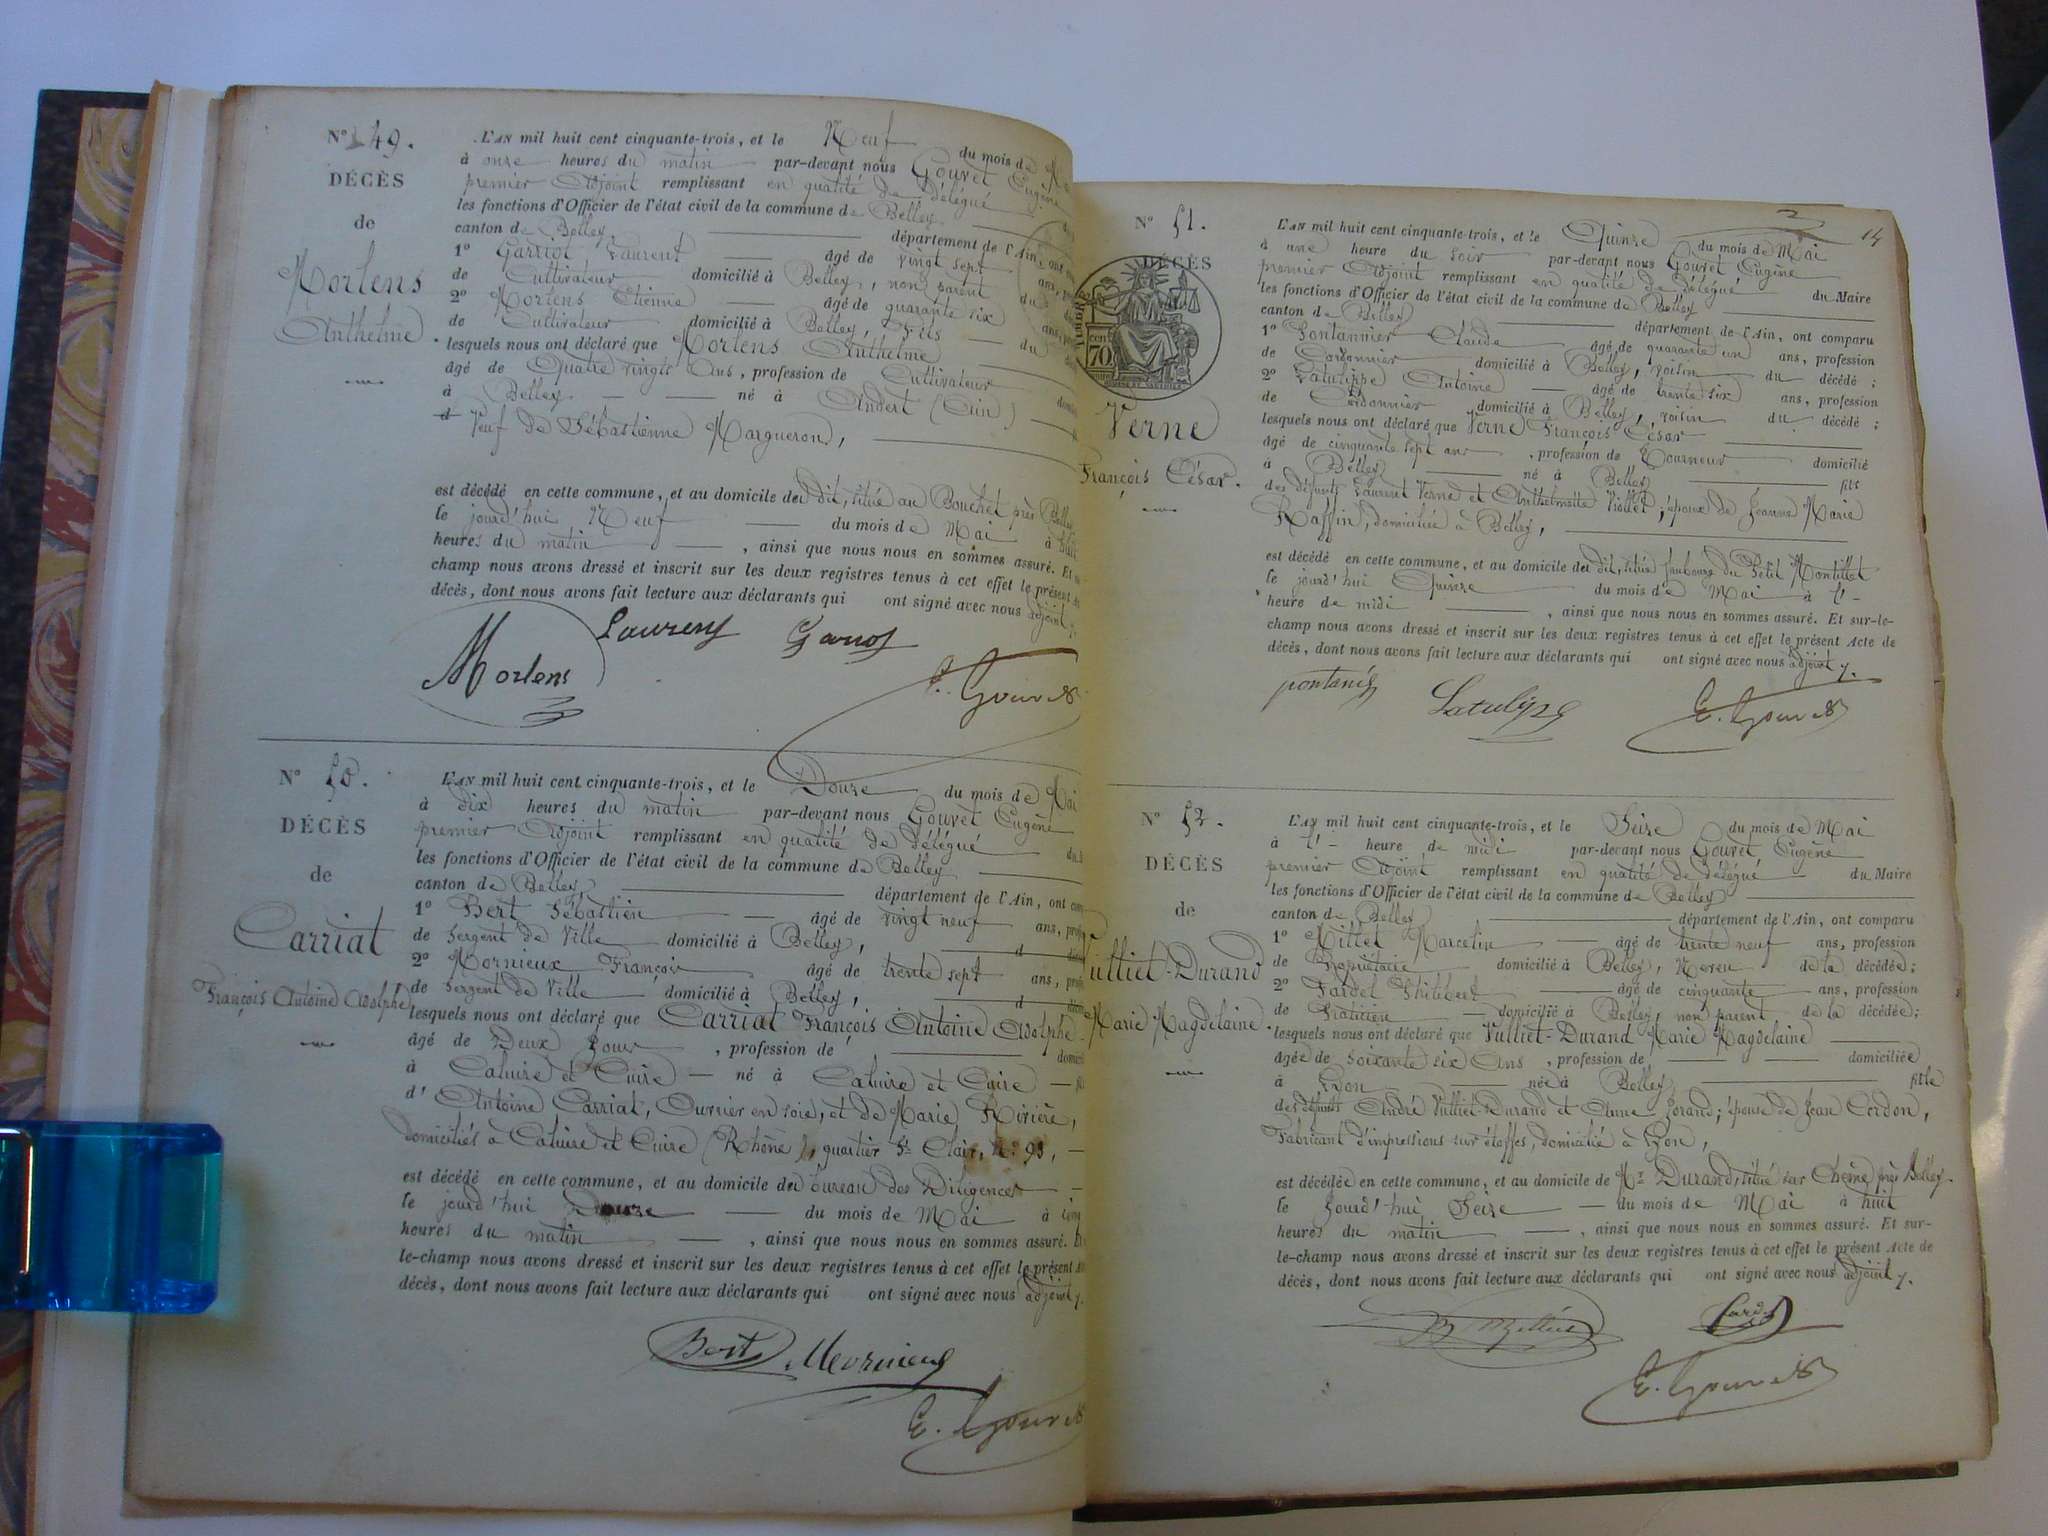 N° 49.
DÉCÈS
de
Morlens
Anthelme
L'AN mil huit cent cinquante-trois, et le Neuf du mois de
à onze heures du matin par-devant nous Gouvet Eugène
premier Adjoint remplissant en qualité de délégué
les fonctions d'Officier de l'état civil de la commune de Belley
canton de Belley département de l'Ain, ont
1° Garriot Laurent âgé de vingt sept ans,
de Cultivateur domicilié à Belley, non parent du
2° Morlens Etienne âgé de quarante six ans,
de Cultivateur domicilié à Belley, Fils du
lesquels nous ont déclaré que Morlens Anthelme
âgé de Quatre vingts Ans, profession de Cultivateur
à Belley né à Andert (Ain)
Veuf de Sébastienne Margueron,
est décédé en cette commune, et au domicile du dit, situé au Bouchet près Belley
le jourd'hui Neuf du mois de Mai à
heures du matin, ainsi que nous nous en sommes assuré. Et
champ nous avons dressé et inscrit sur les deux registres tenus à cet effet le présent
décès, dont nous avons fait lecture aux déclarants qui ont signé avec nous adjoint
Morlens Laurent Garriot
E. Gouvet
N° 50.
DÉCÈS
de
Carriat
François Antoine Adolphe
L'AN mil huit cent cinquante-trois, et le Douze du mois de Mai
à dix heures du matin par-devant nous Gouvet Eugène
premier Adjoint remplissant en qualité de délégué du
les fonctions d'Officier de l'état civil de la commune de Belley
canton de Belley département de l'Ain, ont
1° Bert Sébastien âgé de vingt neuf ans,
de Sergent de Ville domicilié à Belley, d
2° Mornieux François âgé de trente sept ans,
de Sergent de Ville domicilié à Belley, d
lesquels nous ont déclaré que Carriat François Antoine Adolphe
âgé de Deux Jours, profession de
à Caluire et Cuire né à Caluire et Cuire
d'Antoine Carriat, Ouvrier en soie, et de Marie Rivière,
domiciliés à Caluire et Cuire (Rhône), quartier St Clair, N° 93,
est décédé en cette commune, et au domicile du bureau des Diligences
le jourd'hui Douze du mois de Mai à
heures du matin, ainsi que nous nous en sommes assuré.
le-champ nous avons dressé et inscrit sur les deux registres tenus à cet effet le présent
décès, dont nous avons fait lecture aux déclarants qui ont signé avec nous adjoint
Bert Mornieux
E. Gouvet
14
N° 51.
DÉCÈS
TIMBRE
70
Verne
François César.
L'AN mil huit cent cinquante-trois, et le Quinze du mois de Mai
à une heure du soir par-devant nous Gouvet Eugène
premier Adjoint remplissant en qualité de délégué du Maire
les fonctions d'Officier de l'état civil de la commune de Belley
canton de Belley département de l'Ain, ont comparu
1° Fontannier Claude âgé de quarante un ans, profession
de Cordonnier domicilié à Belley, voisin du décédé;
2° Latulippe Antoine âgé de trente six ans, profession
de Cordonnier domicilié à Belley, voisin du décédé;
lesquels nous ont déclaré que Verne François César
âgé de cinquante sept ans, profession de Tourneur domicilié
à Belley né à Belley fils
des défunts Laurent Verne et Anthelmette Viollet; époux de Jeanne Marie
Raffin, domiciliée à Belley,
est décédé en cette commune, et au domicile du dit, situé faubourg du Petit Montillet
le jourd'hui Quinze du mois de Mai à l'-
heure de midi, ainsi que nous nous en sommes assuré. Et sur-le-
champ nous avons dressé et inscrit sur les deux registres tenus à cet effet le présent Acte de
décès, dont nous avons fait lecture aux déclarants qui ont signé avec nous adjoint
Latulipe E. Gouvet
N° 52.
DÉCÈS
de
Vulliet-Durand
Marie Magdelaine.
L'AN mil huit cent cinquante-trois, et le Seize du mois de Mai
à l'- heure de midi par-devant nous Gouvet Eugène
premier Adjoint remplissant en qualité de délégué du Maire
les fonctions d'Officier de l'état civil de la commune de Belley
canton de Belley département de l'Ain, ont comparu
1° Millet Marcelin âgé de trente neuf ans, profession
de Propriétaire domicilié à Belley, Neveu de la décédée;
2° Fardel Philibert âgé de cinquante ans, profession
de Praticien domicilié à Belley, non parent de la décédée;
lesquels nous ont déclaré que Vulliet-Durand Marie Magdelaine
âgée de soixante six Ans, profession de domiciliée
à Lyon née à Belley fille
des défunts André Vulliet-Durand et Anne Jorand; épouse de Jean Cordon,
Fabricant d'impressions sur étoffes, domicilié à Lyon,
est décédée en cette commune, et au domicile de Mr Durand, situé sur Chêne près Belley.
le jourd'hui Seize du mois de Mai à huit
heures du matin, ainsi que nous nous en sommes assuré. Et sur-
le-champ nous avons dressé et inscrit sur les deux registres tenus à cet effet le présent Acte de
décès, dont nous avons fait lecture aux déclarants qui ont signé avec nous adjoint
E. Gouvet